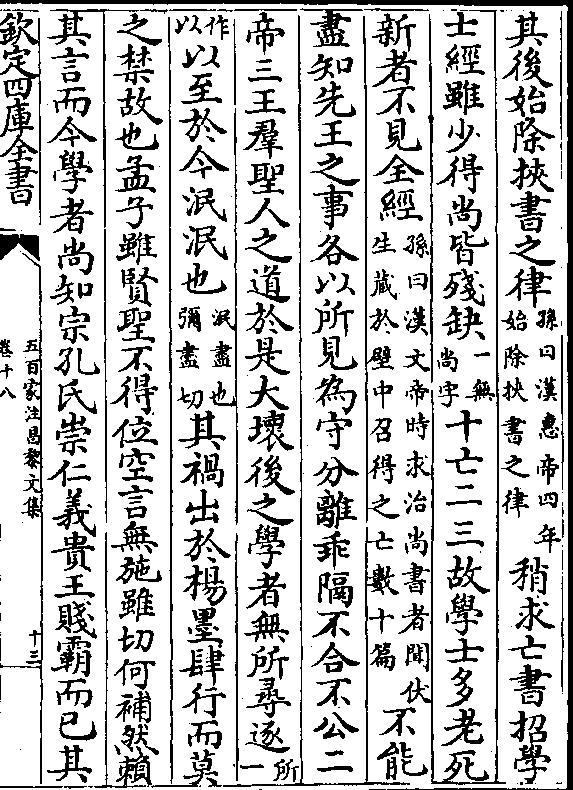 其後始除挾書之律孫曰漢惠帝四年始除挾書之律稍求亡書招學
士經雖少得尚皆殘缺一無尚字十亡二三故學士多老死
新者不見全經孫曰漢文帝時求治尚書者聞伏生藏於壁中召得之亡數十篇不能
盡知先王之事各以所見為守分離乖隔不合不公二
帝三王羣聖人之道於是大壞後之學者無所尋逐所一
作以以至於今泯泯也泯盡也彌盡切其禍出於楊墨肆行而莫
之禁故也孟子雖賢聖不得位空言無施雖切何補然賴
其言而今學者尚知宗孔氏崇仁義貴王賤霸而已其
欽定四庫全書
五百家注昌黎文集
卷十八
十三